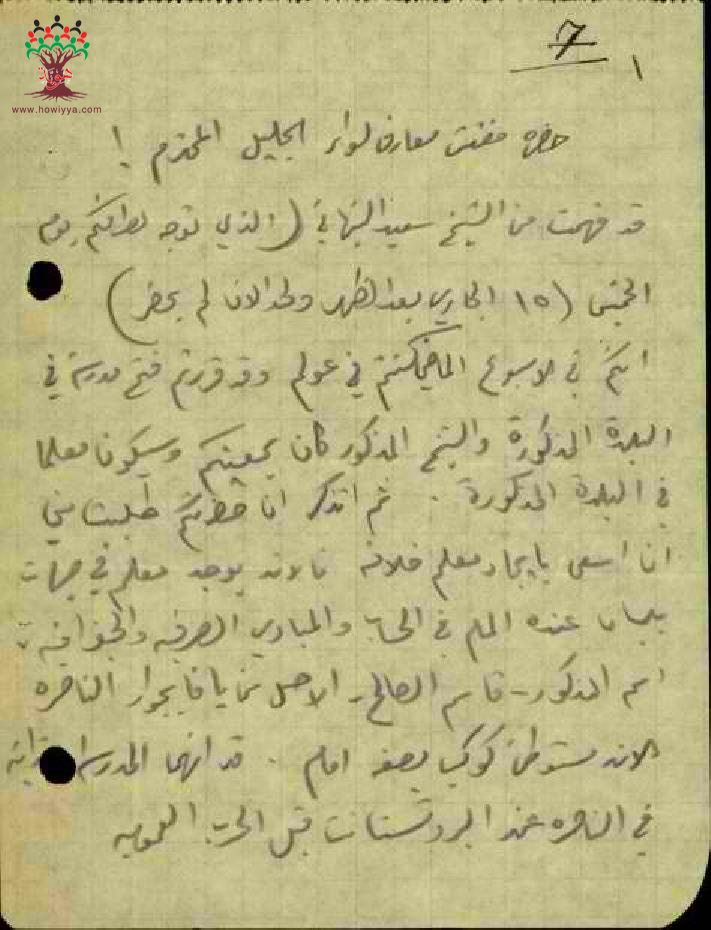 www.howiyya.com
7
١
حضرة مفتش معارف لواء الجليل المحترم !
قد فهمت من الشيخ سعيد النبهاني (الذي توجه لطرفكم يوم
الخميس (١٥ الجاري بعد الظهر ولحد الان لم يحضر)
انكم في الاسبوع الماضي كنتم في عولم وقد قررتم فتح مدرسة في
البلدة المذكورة والشيخ المذكور كان بمعيتكم وسيكون معلما
في البلدة المذكورة . ثم اتذكر ان حضرتكم طلبت مني
ان اسعى بايجاد معلم خلافه فالان يوجد معلم في جهات
بيسان عنده المام في الحساب والمبادئ الصرفيه والجغرافيه
اسم المذكور - قاسم الصالح - الاصل من يافا بجوار الناصره
الان مستوطن كوكب بصفة امام . قد انهى المدرسة
في الناصره عند البروتستانت قبل الحرب العموميه